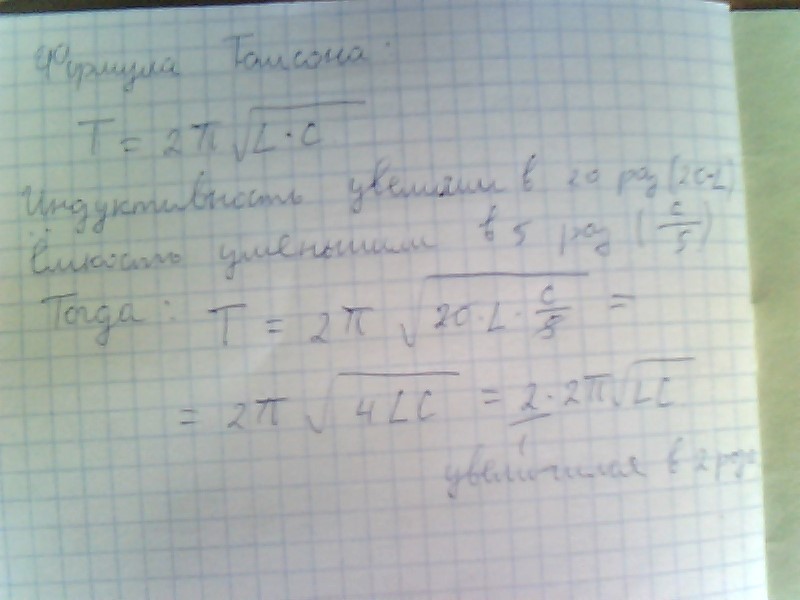 Формула Томсона:
T = 2π √L·C
Индуктивность увеличим в 20 раз (20·L)
Ёмкость уменьшим в 5 раз (C/5)
Тогда: T = 2π √20·L·C/5 =
= 2π √4LC = 2·2π√LC
увеличился в 2 раза